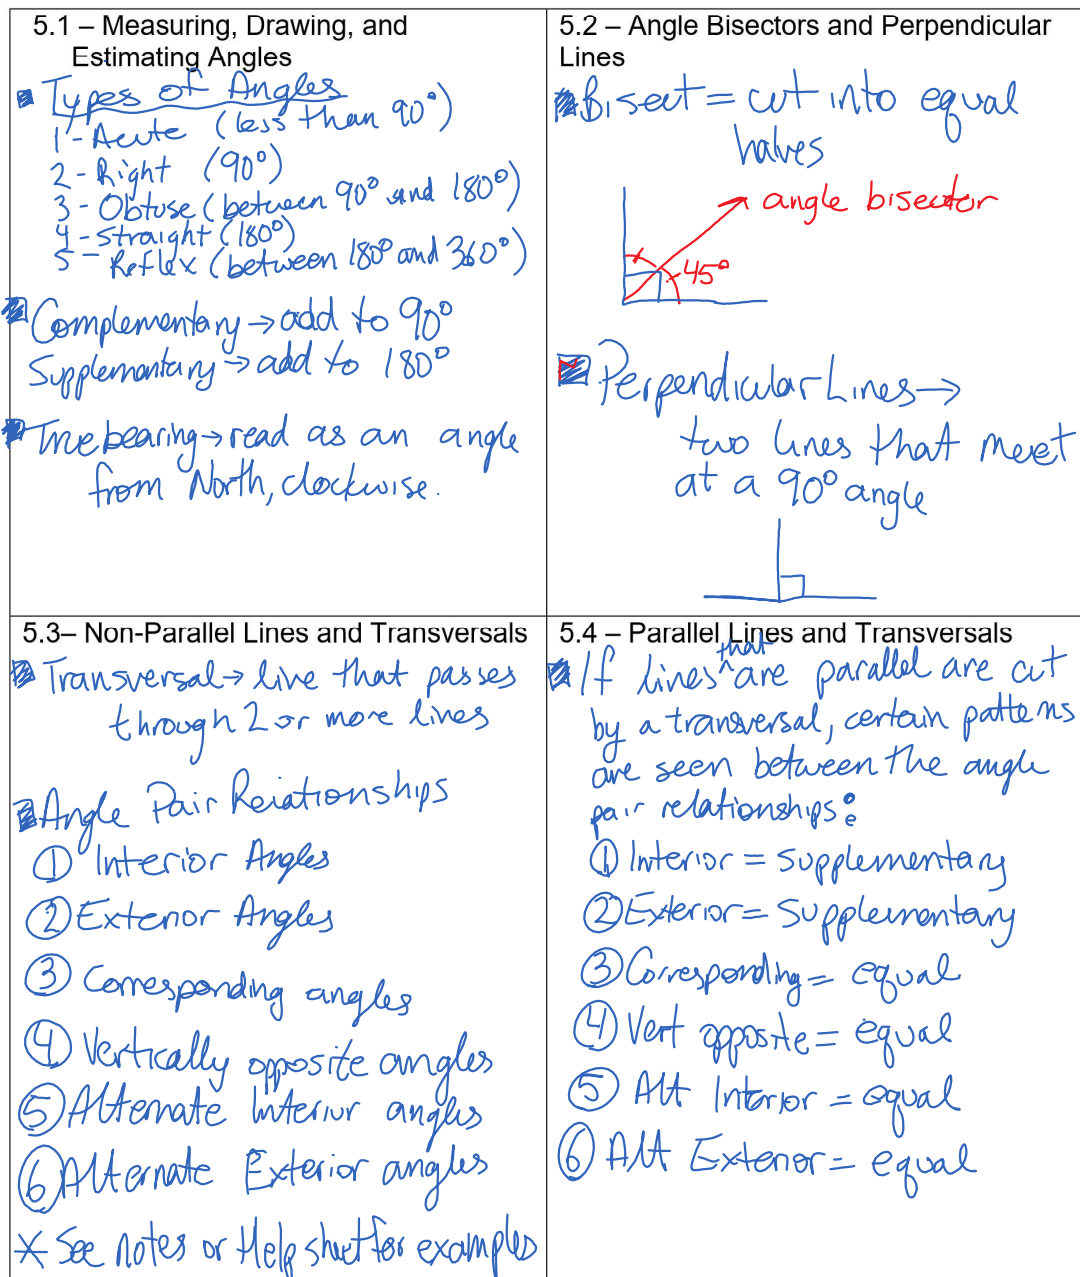 5.1 – Measuring, Drawing, and
Estimating Angles
Types of Angles
1 - Acute (less than 90°)
2 - Right (90°)
3 - Obtuse (between 90° and 180°)
4 - straight (180°)
5 - Reflex (between 180° and 360°)
Complementary → add to 90°
Supplementary → add to 180°
True bearing → read as an angle
from North, clockwise.
5.2 – Angle Bisectors and Perpendicular
Lines
Bisect = cut into equal
halves
angle bisector
45°
Perpendicular Lines →
two lines that meet
at a 90° angle
5.3– Non-Parallel Lines and Transversals
Transversal → line that passes
through 2 or more lines
Angle Pair Relationships
① Interior Angles
② Exterior Angles
③ Corresponding angles
④ Vertically opposite angles
⑤ Alternate Interior angles
⑥ Alternate Exterior angles
* See notes or Help sheet for examples
5.4 – Parallel Lines and Transversals
If lines that are parallel are cut
by a transversal, certain patterns
are seen between the angle
pair relationships:
① Interior = supplementary
② Exterior = Supplementary
③ Corresponding = equal
④ Vert opposite = equal
⑤ Alt Interior = equal
⑥ Alt Exterior = equal